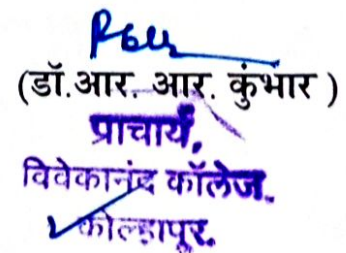 (डॉ.आर. आर. कुंभार )
प्राचार्य,
विवेकानंद कॉलेज.
कोल्हापूर.